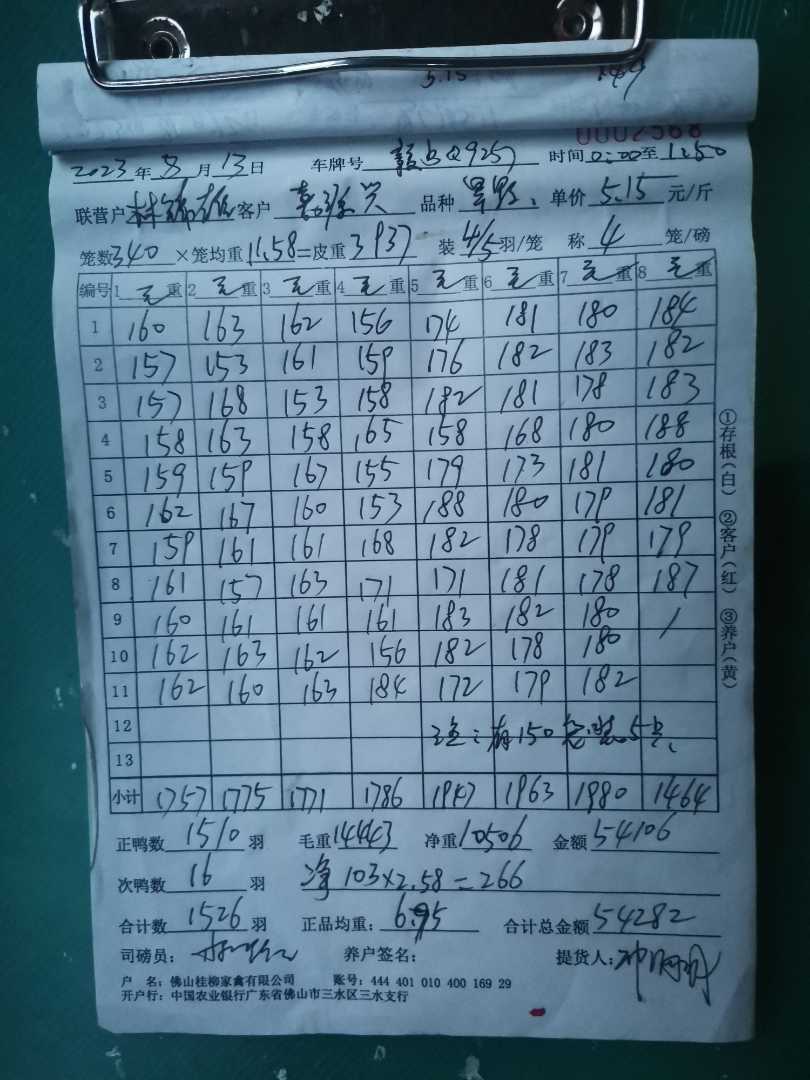 5.15 149
0002568
2023年8月13日 车牌号 Q9257 时间0:00至1:50
联营户林锦雄客户 品种 单价5.15元/斤
笼数340×笼均重11.58=皮重3937 装4/5羽/笼 称4笼/磅
编号 1毛重 2毛重 3毛重 4毛重 5毛重 6毛重 7毛重 8毛重
1 160 163 162 156 174 181 180 184
2 157 153 161 159 176 182 183 182
3 157 168 153 158 182 181 178 183
4 158 163 158 165 158 168 180 188
5 159 159 167 155 179 173 181 180
6 162 167 160 153 188 180 179 181
7 159 161 161 168 182 178 179 179
8 161 157 163 171 171 181 178 187
9 160 161 161 161 183 182 180 /
10 162 163 162 156 182 178 180
11 162 160 163 184 172 179 182
12 注:有150笼装5只
13
小计 1757 1775 1771 1786 1947 1963 1980 1464
正鸭数1510羽 毛重14443 净重10506 金额54106
次鸭数16羽 净103×2.58=266
合计数1526羽 正品均重:6.95 合计总金额54282
司磅员: 养户签名: 提货人:
户 名:佛山桂柳家禽有限公司 账号:444 401 010 400 169 29
开户行:中国农业银行广东省佛山市三水区三水支行
①存根(白) ②客户(红) ③养户(黄)